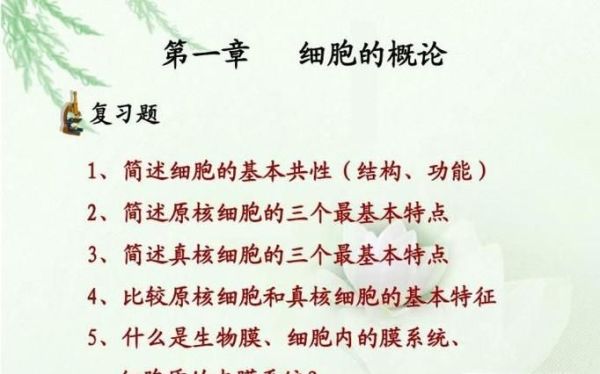 第一章 细胞的概论
复习题
1、简述细胞的基本共性（结构、功能）
2、简述原核细胞的三个最基本特点
3、简述真核细胞的三个最基本特点
4、比较原核细胞和真核细胞的基本特征
5、什么是生物膜、细胞内的膜系统、